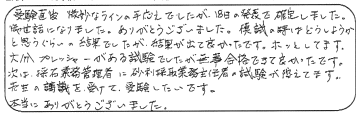 受験直後 微妙なラインの手応えでしたが、18日の発表で確定しました。
御世話になりました。ありがとうございました。模試の時はどうしようか
と思うぐらいの結果でしたが、結果が出て良かったです。ホッとしてます。
大分プレッシャーがある試験でしたが無事合格できて良かったです。
次は、採石業務管理者に砂利採取業務主任者の試験が控えてます。
先生の講義を受けて、受験したいです。
本当にありがとうございました。